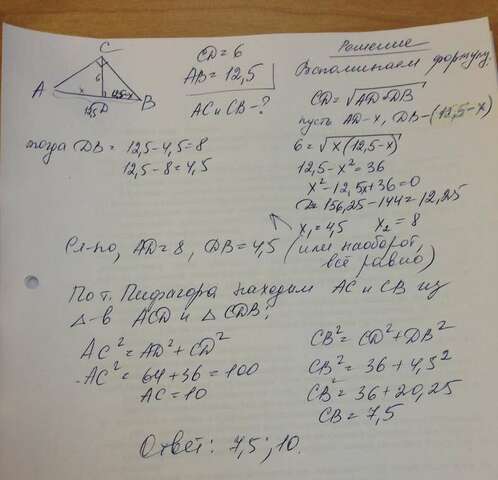 C
A
6
x
12,5-x
B
12,5
D
CD = 6
AB = 12,5
AC и CB - ?
Решение
Вспоминаем формулу.
CD = √AD·DB
пусть AD - x, DB - (12,5 - x)
6 = √x(12,5 - x)
12,5 - x² = 36
x² - 12,5x + 36 = 0
D = 156,25 - 144 = 12,25
x₁ = 4,5 x₂ = 8
тогда DB = 12,5 - 4,5 = 8
12,5 - 8 = 4,5
Сл-но, AD = 8, DB = 4,5 (или наоборот,
всё равно)
По т. Пифагора находим AC и CB из
Δ-в ACD и Δ CDB:
AC² = AD² + CD²
AC² = 64 + 36 = 100
AC = 10
CB² = CD² + DB²
CB² = 36 + 4,5²
CB² = 36 + 20,25
CB = 7,5
Ответ: 7,5; 10.